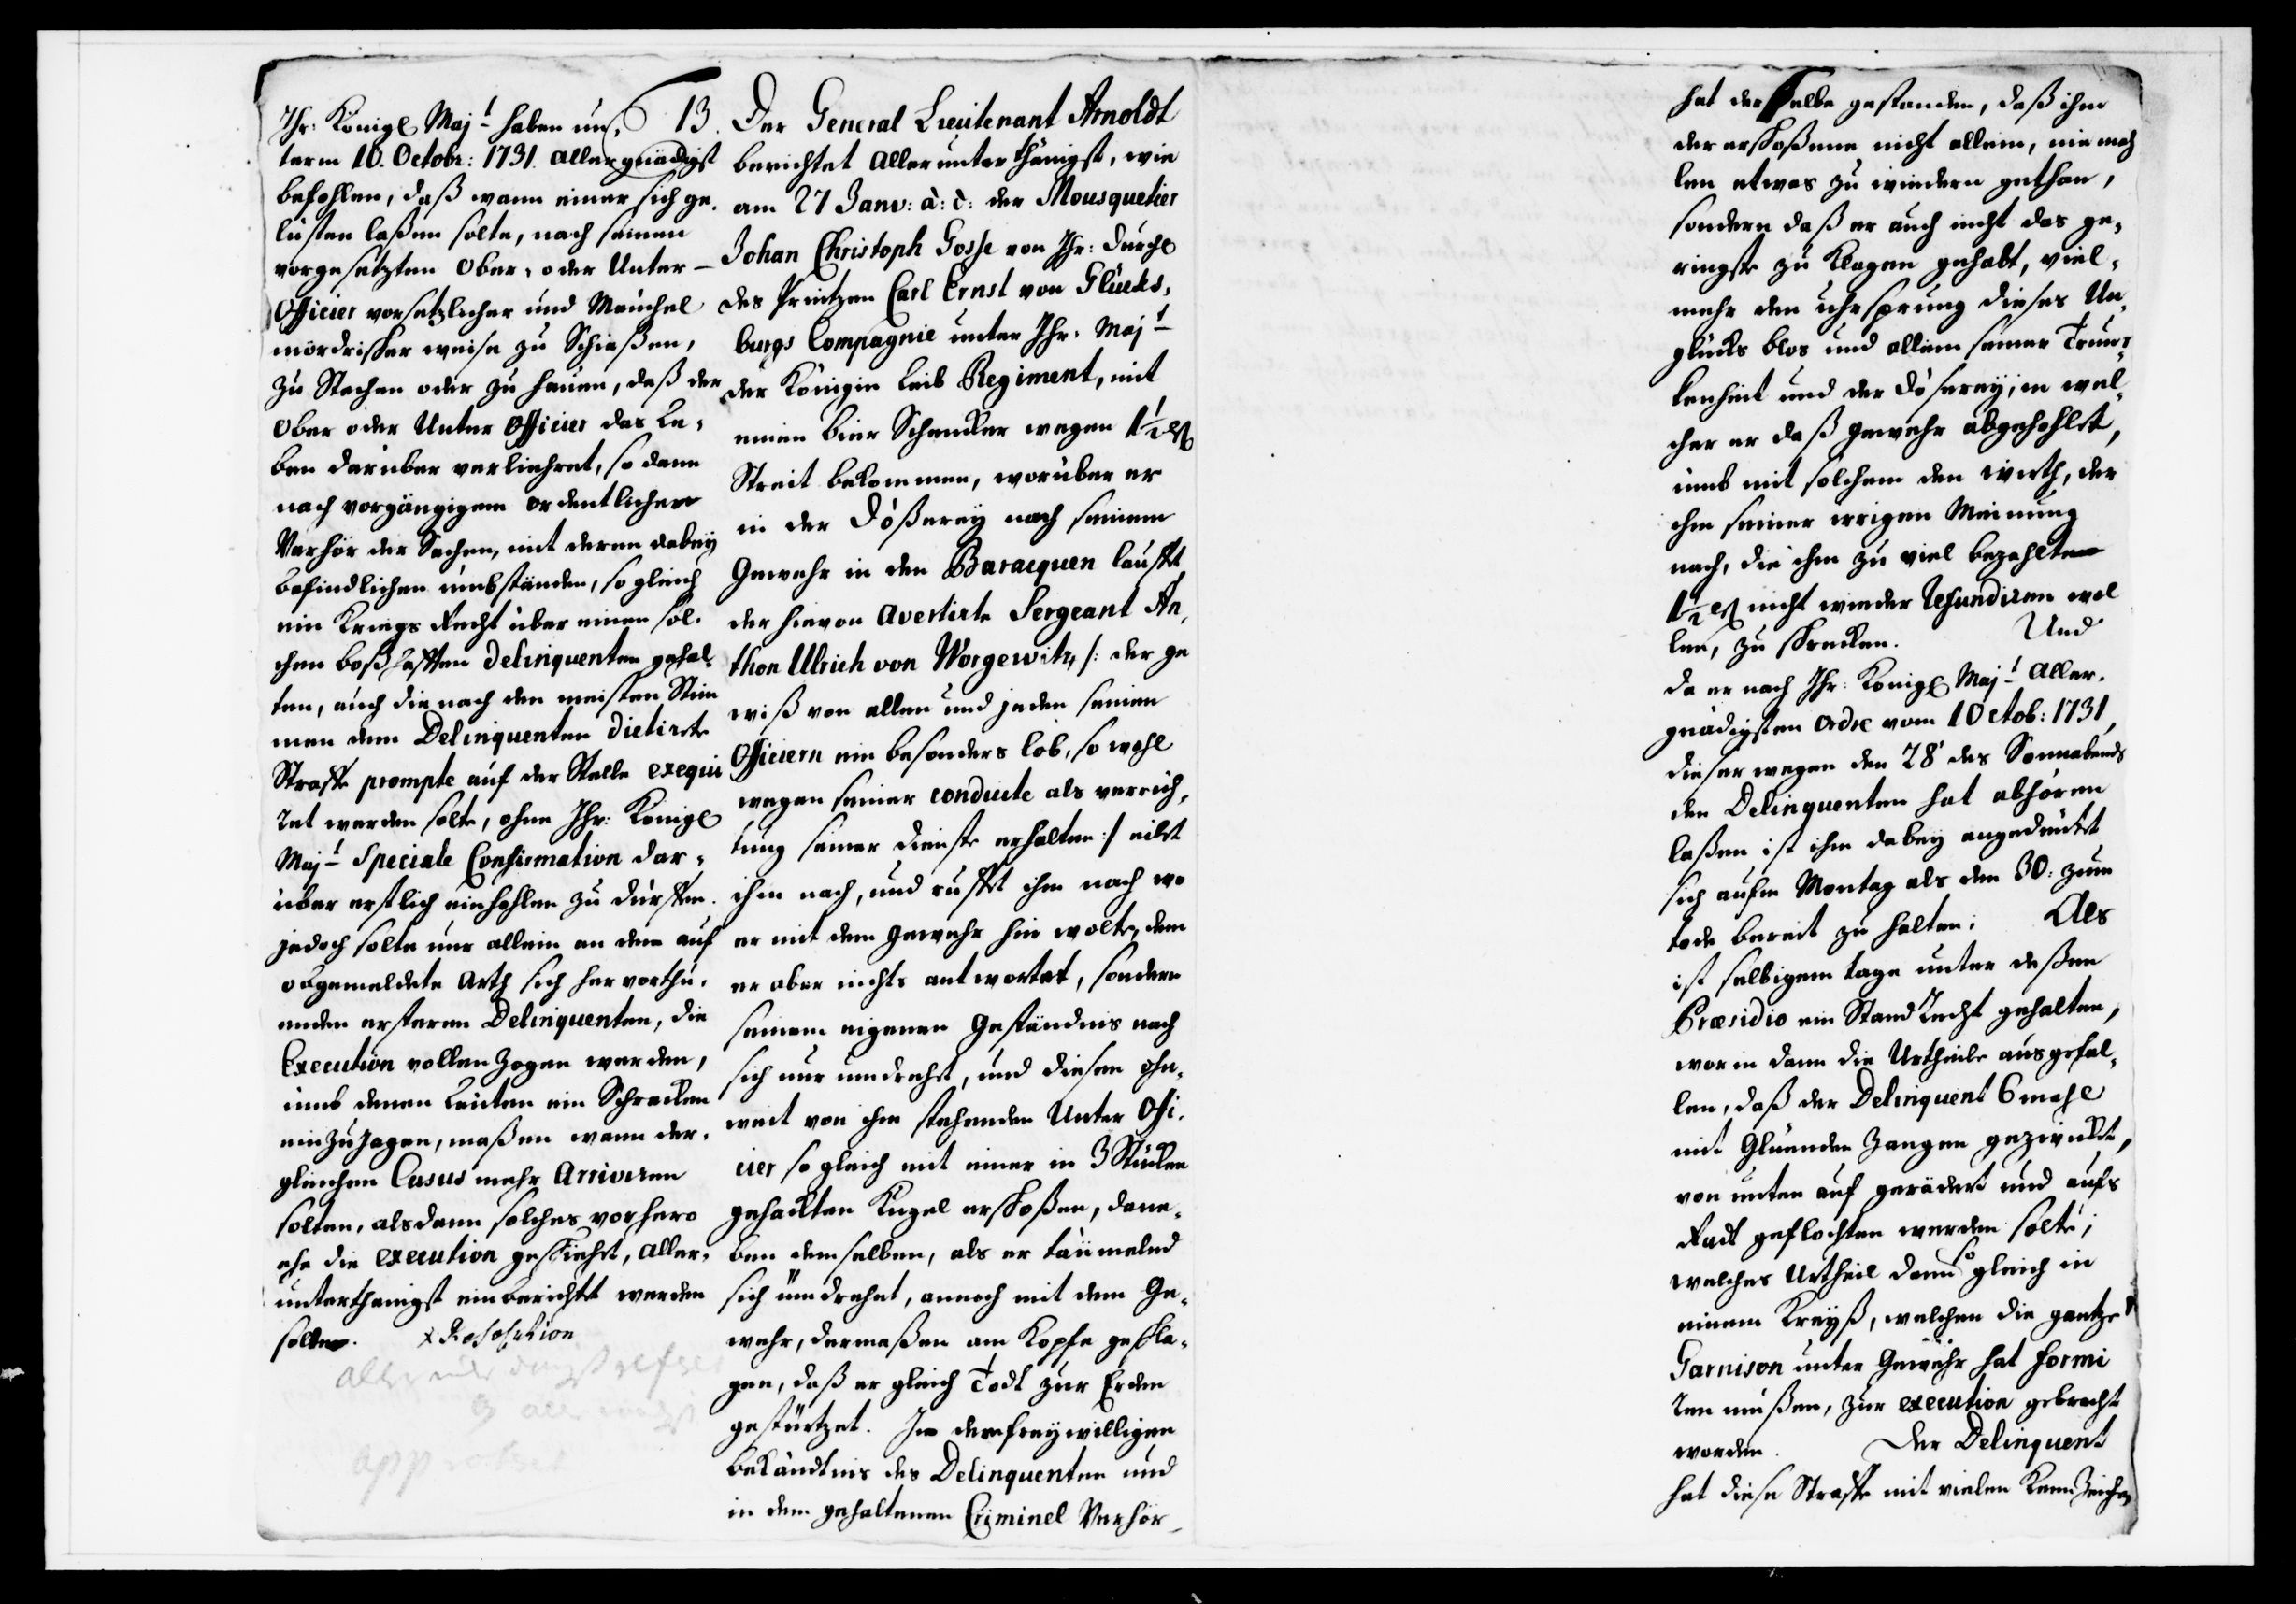 Ihr: Königl Majt haben un¬
term 10. Octobr: 1731. allergnädigst
befohlen, daß wann einer sich ge¬
lüsten laßen solte, nach seinen
vorgesetzten Ober¬ oder Unter¬
Officier vorsetzlicher und Meuchel
mördrischer weise zu Schießen,
zu Stechen oder zu hauen, daß der
Ober oder Unter Officier das Le¬
ben darüber verliehret, so dann
nach vorgängigem ordentlichen
Verhör der Sachen, mit deren dabey
befindlichen umbständen, so gleich
ein Kriegs Recht über einen sol¬
chen boßhafften delinquenten gehal¬
ten, auch die nach den meisten Stim
men dem Delinquenten dictirte
Straffe prompte auf der Stelle exequi
ret werden solte, ohne Ihr: Königl
Majt Speciale Confirmation dar¬
über erstlich einhohlen zu dürffen.
jedoch solte nur allein an dem auf
obgemeldete Arth sich hervorthu¬
enden ersteren Delinquenten, die
Execution vollenzogen werden,
umb denen Leuten ein Schrecken
einzujagen, maßen wann der¬
gleichen Casus mehr Arriviren
solten, alsdann solches vorhero
ehe die execution geschiehet, aller¬
unterthänigst einberichtet werden
solte. x Resolution
app
13. Der General Lieutenant Arnoldt
berichtet allerunterthänigst, wie
am 27 Janv: a: c: der Mousquetier
Johan Christoph Gosse von Ihr: Durchl
des Printzen Carl Ernst von Glücks¬
burgs Compagnie unter Ihr: Majt
der Königin Leib Regiment, mit
einen bier Schencker wegen 1½ ß
Streit bekommen, worüber er
in der Dößerey nach seinem
Gewehr in den Baracquen laufft,
der hievon avertirte Sergeant An¬
thon Ulrich von Worgewitz /: der ge
wiß von allen und jeden seinen
Officiern ein besonders lob, so wohl
wegen seiner conduite als verrich¬
tung seiner dienste erhalten :/ eilet
ihm nach, und rufft ihm nach wo
er mit dem Gewehr hin wolte, dem
er aber nichts antwortet, sondern
seinem eigenen Geständnis nach
sich nur umdrehet, und diesen ohn¬
weit von ihm stehenden Unter Offi¬
cier so gleich mit einer in 3 Stücken
gehackten Kugel erschoßen, dane¬
ben demselben, als er taumelnd
sich umdrehet, annoch mit dem Ge¬
wehr, dermaßen am Kopfe geschla¬
gen, daß er gleich Todt zur Erden
gestürtzet. In dem freywilligen
bekändtnis des Delinquenten und
in dem gehaltenen Criminel Verhör
hat derselbe gestanden, daß ihm
der erschoßene nicht allein, niemah
len etwas zu wiedern gethan,
sondern daß er auch nicht das ge¬
ringste zu Klagen gehabt, viel¬
mehr den uhrsprung dieses Un¬
glücks blos und allein seiner Trunc¬
kenheit und der Döserey, in wel¬
cher er daß Gewehr abgehohlet,
umb mit solchem den Wirth, der
ihm seiner irrigen Meinung
nach, die ihm zu viel bezahlten
1½ ß nicht wieder refundiren wol
len, zu schrecken. Und
da er nach Ihr: Königl Majt Aller¬
gnädigsten Ordre vom 10 Octob: 1731,
dieserwegen den 28 des Sonnabends
den Delinquenten hat abhören
laßen ist ihm dabey angedeutet
sich aufm Montag als den 30: zum
tode bereit zu halten; Als
ist selbigem tage unter deßen
Præsidio ein Stand Recht gehalten,
worin dann die Urtheile ausgefal¬
len, daß der Delinquent 6 mahl
mit Glüenden Zangen gezwickt,
von unten auf gerädert und aufs
Radt geflochten werden solte;
welches Urtheil dann so gleich in
einem Kreyß, welchen die gantze
Garnison unter Gewehr hat formi
ren müßen, zur execution gebracht
worden. Der Delinquent
hat diese Straffe mit vielen Kennzeichen